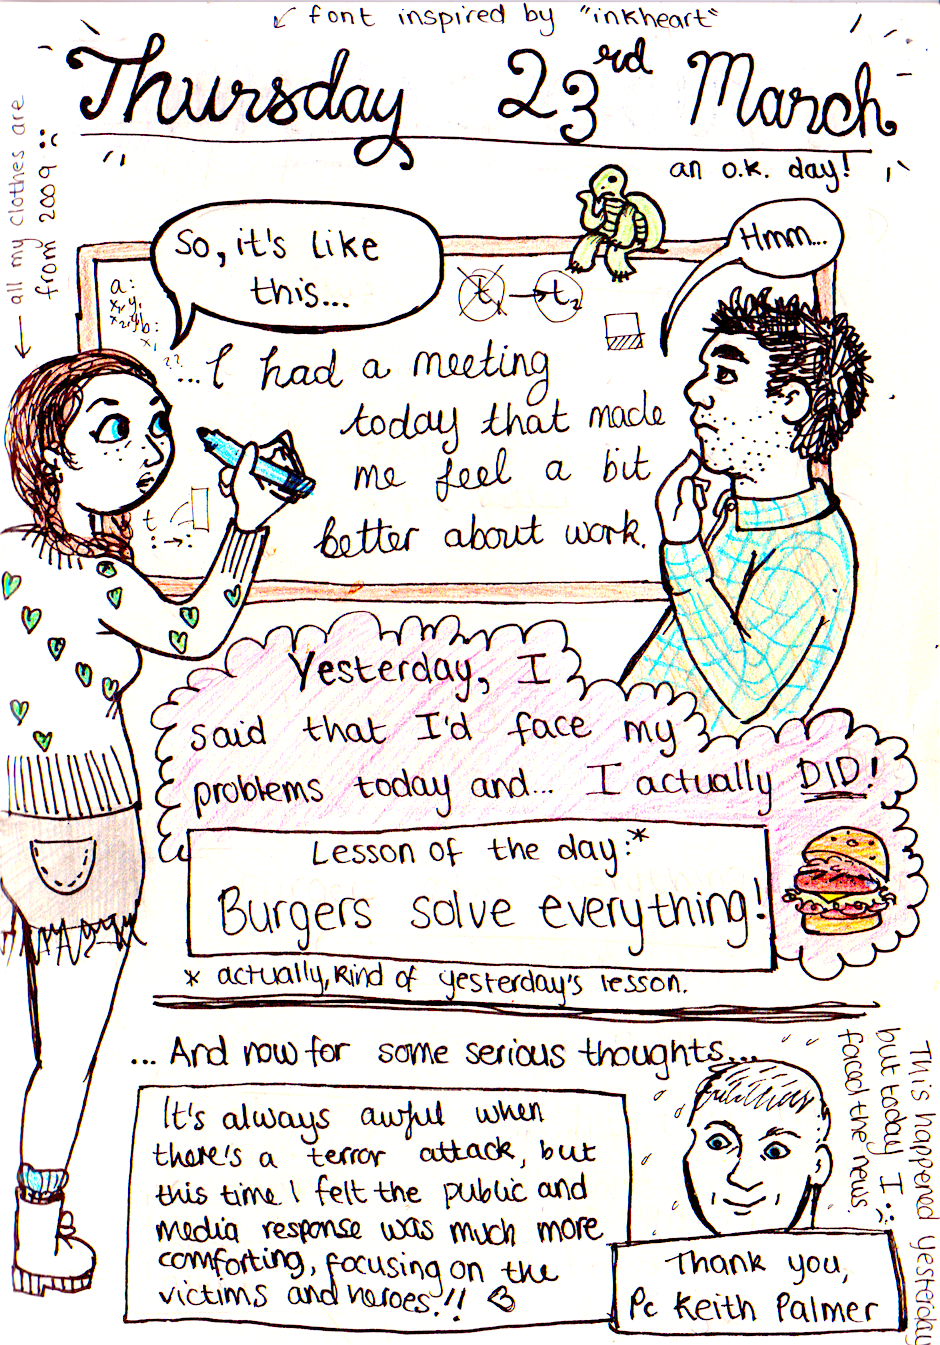 font inspired by "inkheart"
Thursday 23rd March
an o.k. day!
all my clothes are
from 2009
So, it's like
this...
Hmm...
a:
x₁,y₁
x₂,y₂
b:
x₁
??
t₁ → t₂
...I had a meeting
today that made
me feel a bit
better about work.
t
Yesterday, I
said that I'd face my
problems today and... I actually DID!
Lesson of the day:*
Burgers solve everything!
* actually, kind of yesterday's lesson.
... And now for some serious thoughts...
It's always awful when
there's a terror attack, but
this time I felt the public and
media response was much more
comforting, focusing on the
victims and heroes!!
Thank you,
Pc Keith Palmer
This happened yesterday
but today I
faced the news.